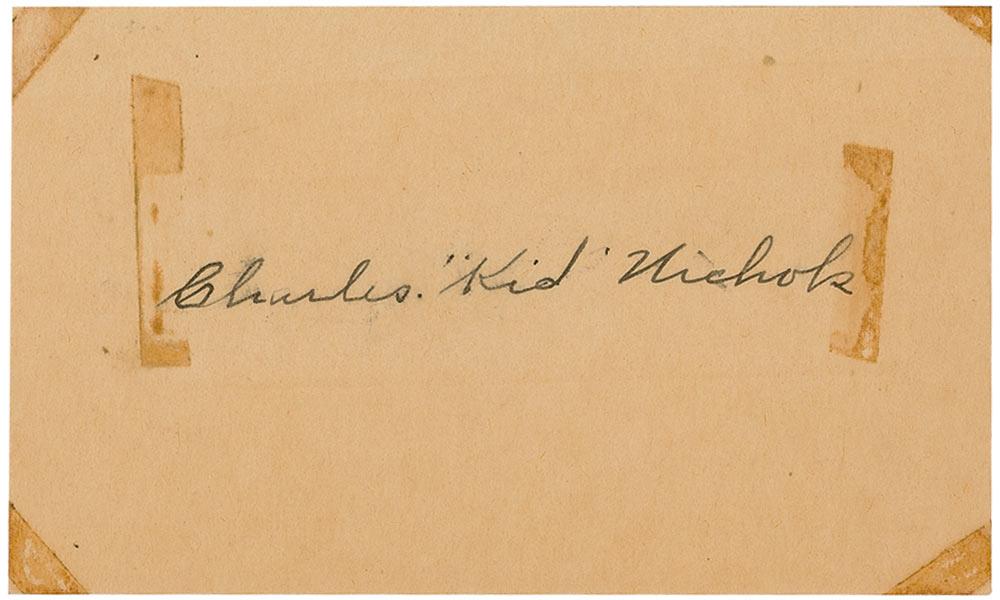 Charles. "Kid" Nichols